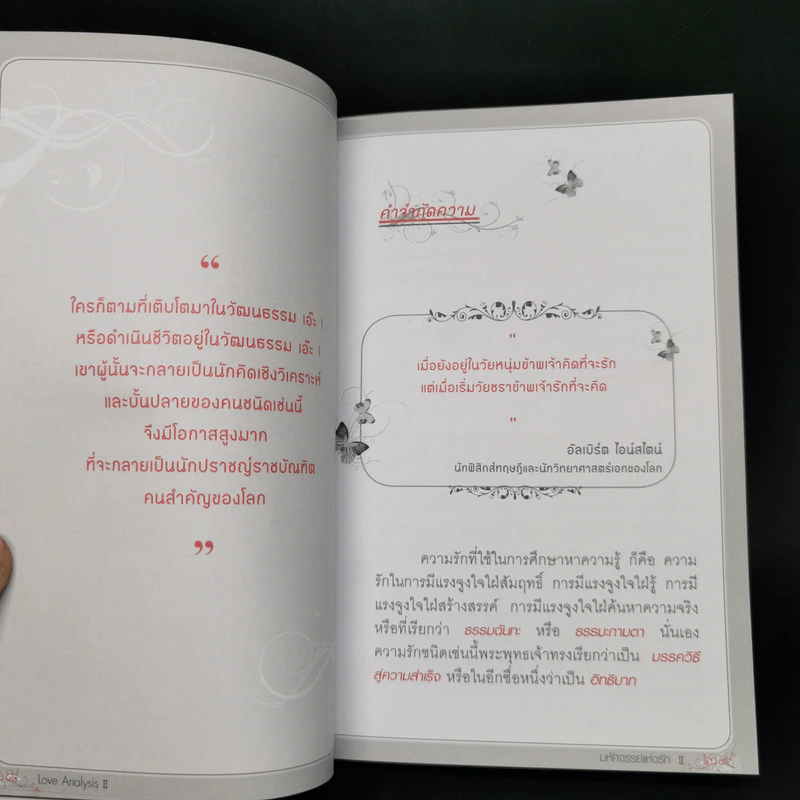 “
ใครก็ตามที่เติบโตมาในวัฒนธรรม เอ๊ะ !
หรือดำเนินชีวิตอยู่ในวัฒนธรรม เอ๊ะ !
เขาผู้นั้นจะกลายเป็นนักคิดเชิงวิเคราะห์
และบั้นปลายของคนชนิดเช่นนี้
จึงมีโอกาสสูงมาก
ที่จะกลายเป็นนักปราชญ์ราชบัณฑิต
คนสำคัญของโลก
”
Love Analysis II
คำจำกัดความ
"
เมื่อยังอยู่ในวัยหนุ่มข้าพเจ้าคิดที่จะรัก
แต่เมื่อเริ่มวัยชราข้าพเจ้ารักที่จะคิด
"
อัลเบิร์ต ไอน์สไตน์
นักฟิสิกส์ทฤษฎีและนักวิทยาศาสตร์เอกของโลก
ความรักที่ใช้ในการศึกษาหาความรู้ ก็คือ ความ
รักในการมีแรงจูงใจใฝ่สัมฤทธิ์ การมีแรงจูงใจใฝ่รู้ การมี
แรงจูงใจใฝ่สร้างสรรค์ การมีแรงจูงใจใฝ่ค้นหาความจริง
หรือที่เรียกว่า ธรรมฉันทะ หรือ ธรรมะกามตา นั่นเอง
ความรักชนิดเช่นนี้พระพุทธเจ้าทรงเรียกว่าเป็น มรรควิธี
สู่ความสำเร็จ หรือในอีกชื่อหนึ่งว่าเป็น อิทธิบาท
มหัศจรรย์แห่งรัก II